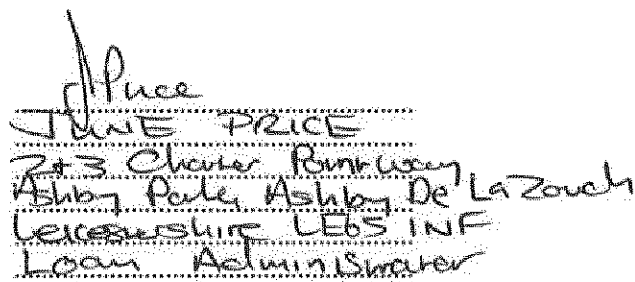 JPrice
JUNE PRICE
2+3 Charter Point Way
Ashby Park, Ashby De La Zouch
Leicestershire LE65 1NF
Loan Administrator